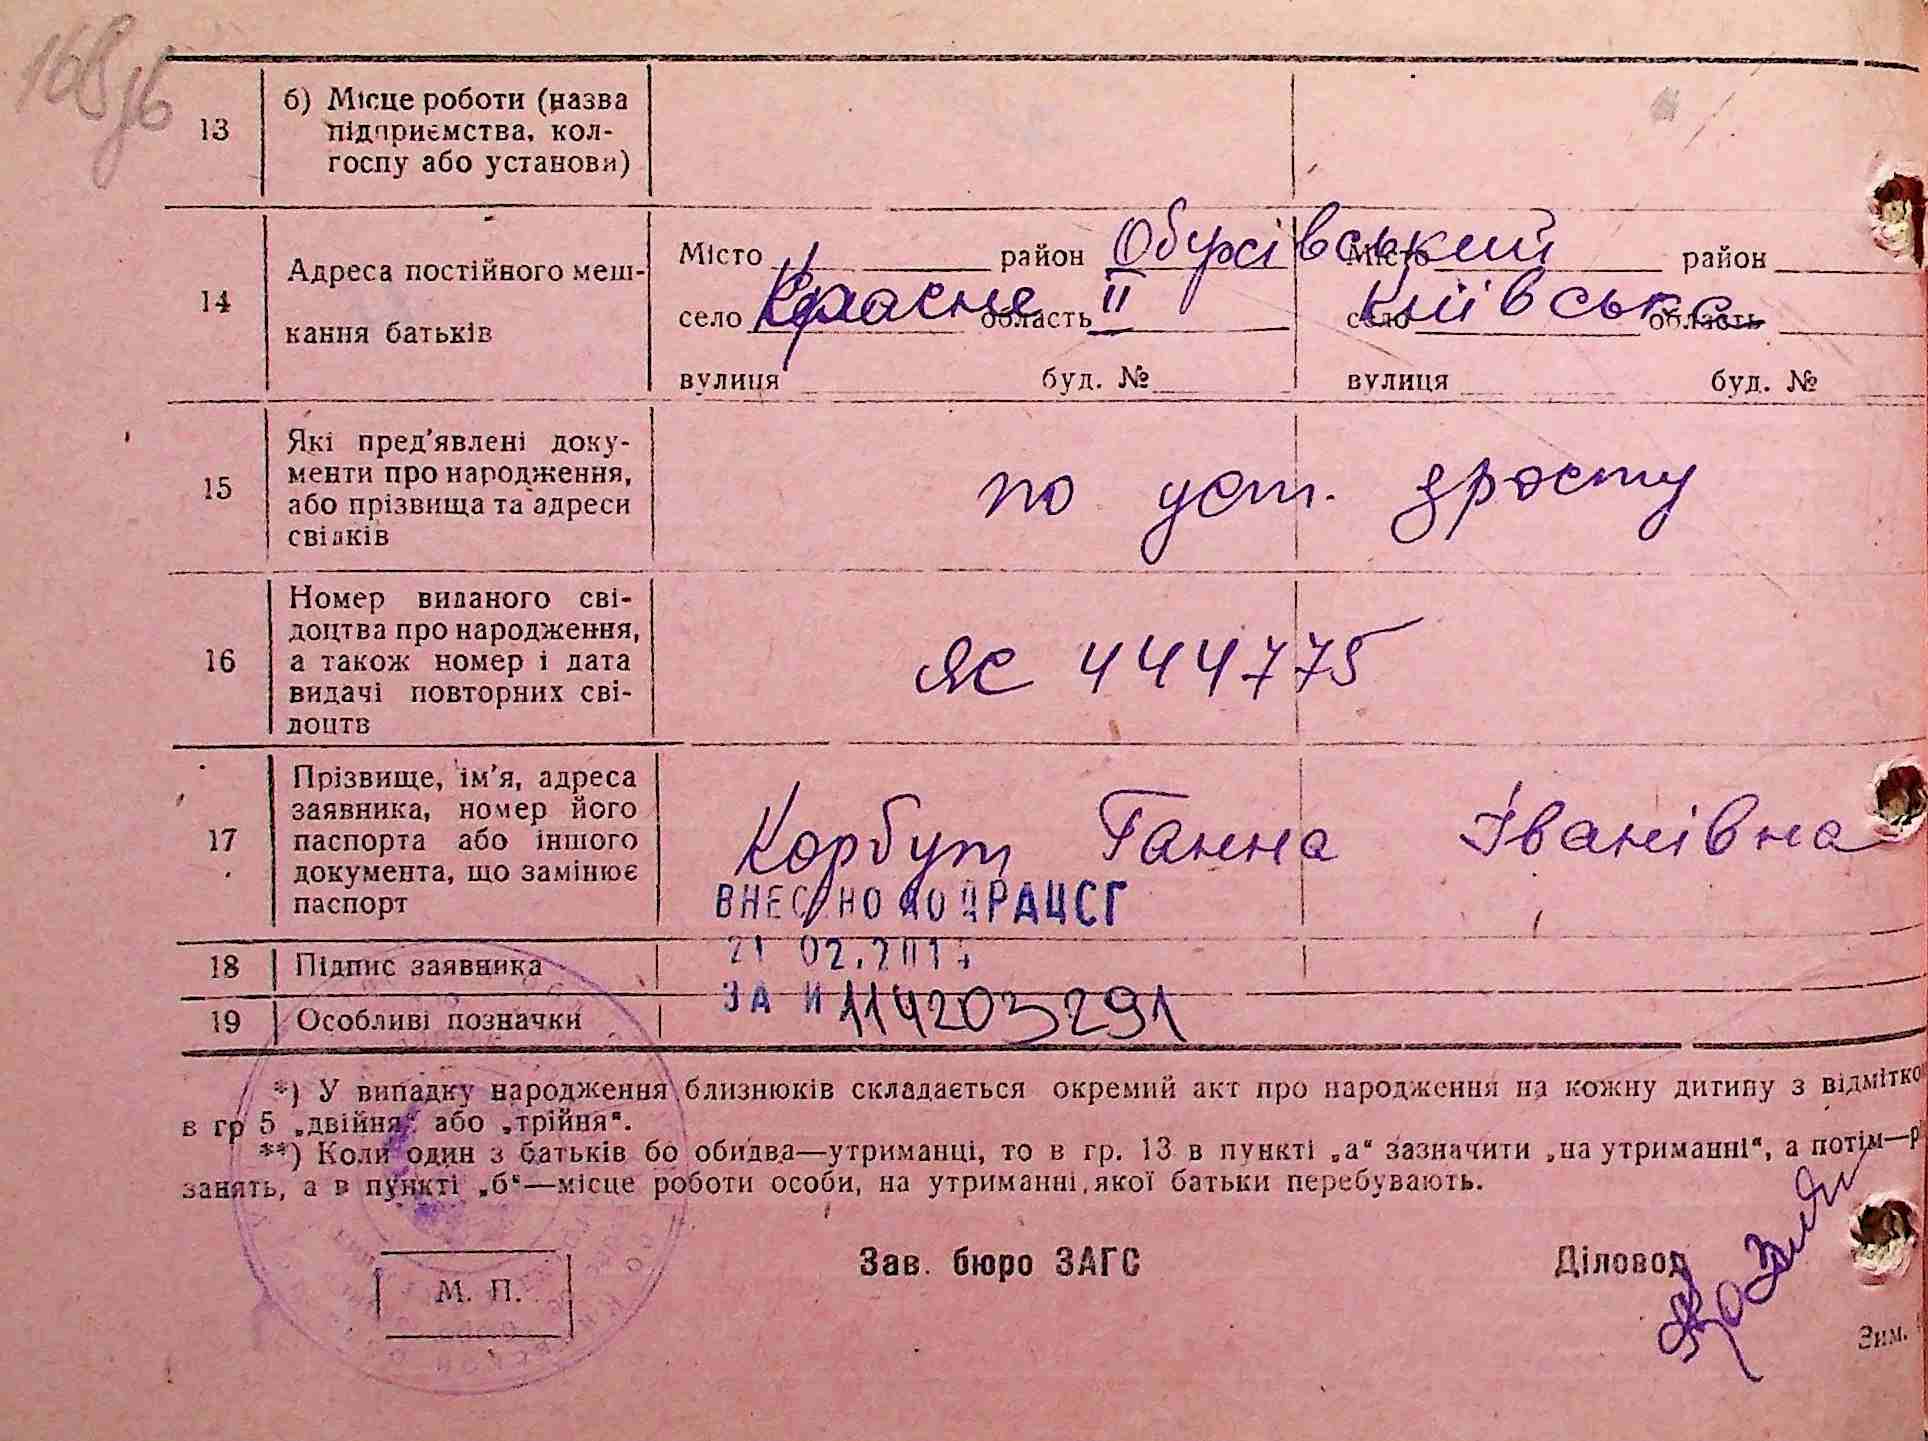 13 б) Місце роботи (назва
підприємства, кол-
госпу або установи)
14 Адреса постійного меш-
кання батьків
Місто район Обухівський Місто район
село Красне область ІІ село Київська область
вулиця буд. № вулиця буд. №
15 Які пред'явлені доку-
менти про народження,
або прізвища та адреси
свідків
по уст. зросту
16 Номер виданого сві-
доцтва про народження,
а також номер і дата
видачі повторних сві-
доцтв
ЯС 444775
17 Прізвище, ім'я, адреса
заявника, номер його
паспорта або іншого
документа, що замінює
паспорт
Корбут Ганна Іванівна
ВНЕСЕНО ДО ДРАЦСГ
18 Підпис заявника
21 02.201
19 Особливі позначки
ЗА № 114203291
*) У випадку народження близнюків складається окремий акт про народження на кожну дитину з відмітко
в гр 5 „двійня“ або „трійня“.
**) Коли один з батьків бо обидва—утриманці, то в гр. 13 в пункті „а“ зазначити „на утриманні“, а потім—р
занять, а в пункті „б“—місце роботи особи, на утриманні якої батьки перебувають.
Зав. бюро ЗАГС Діловод
М. П.
Зим.